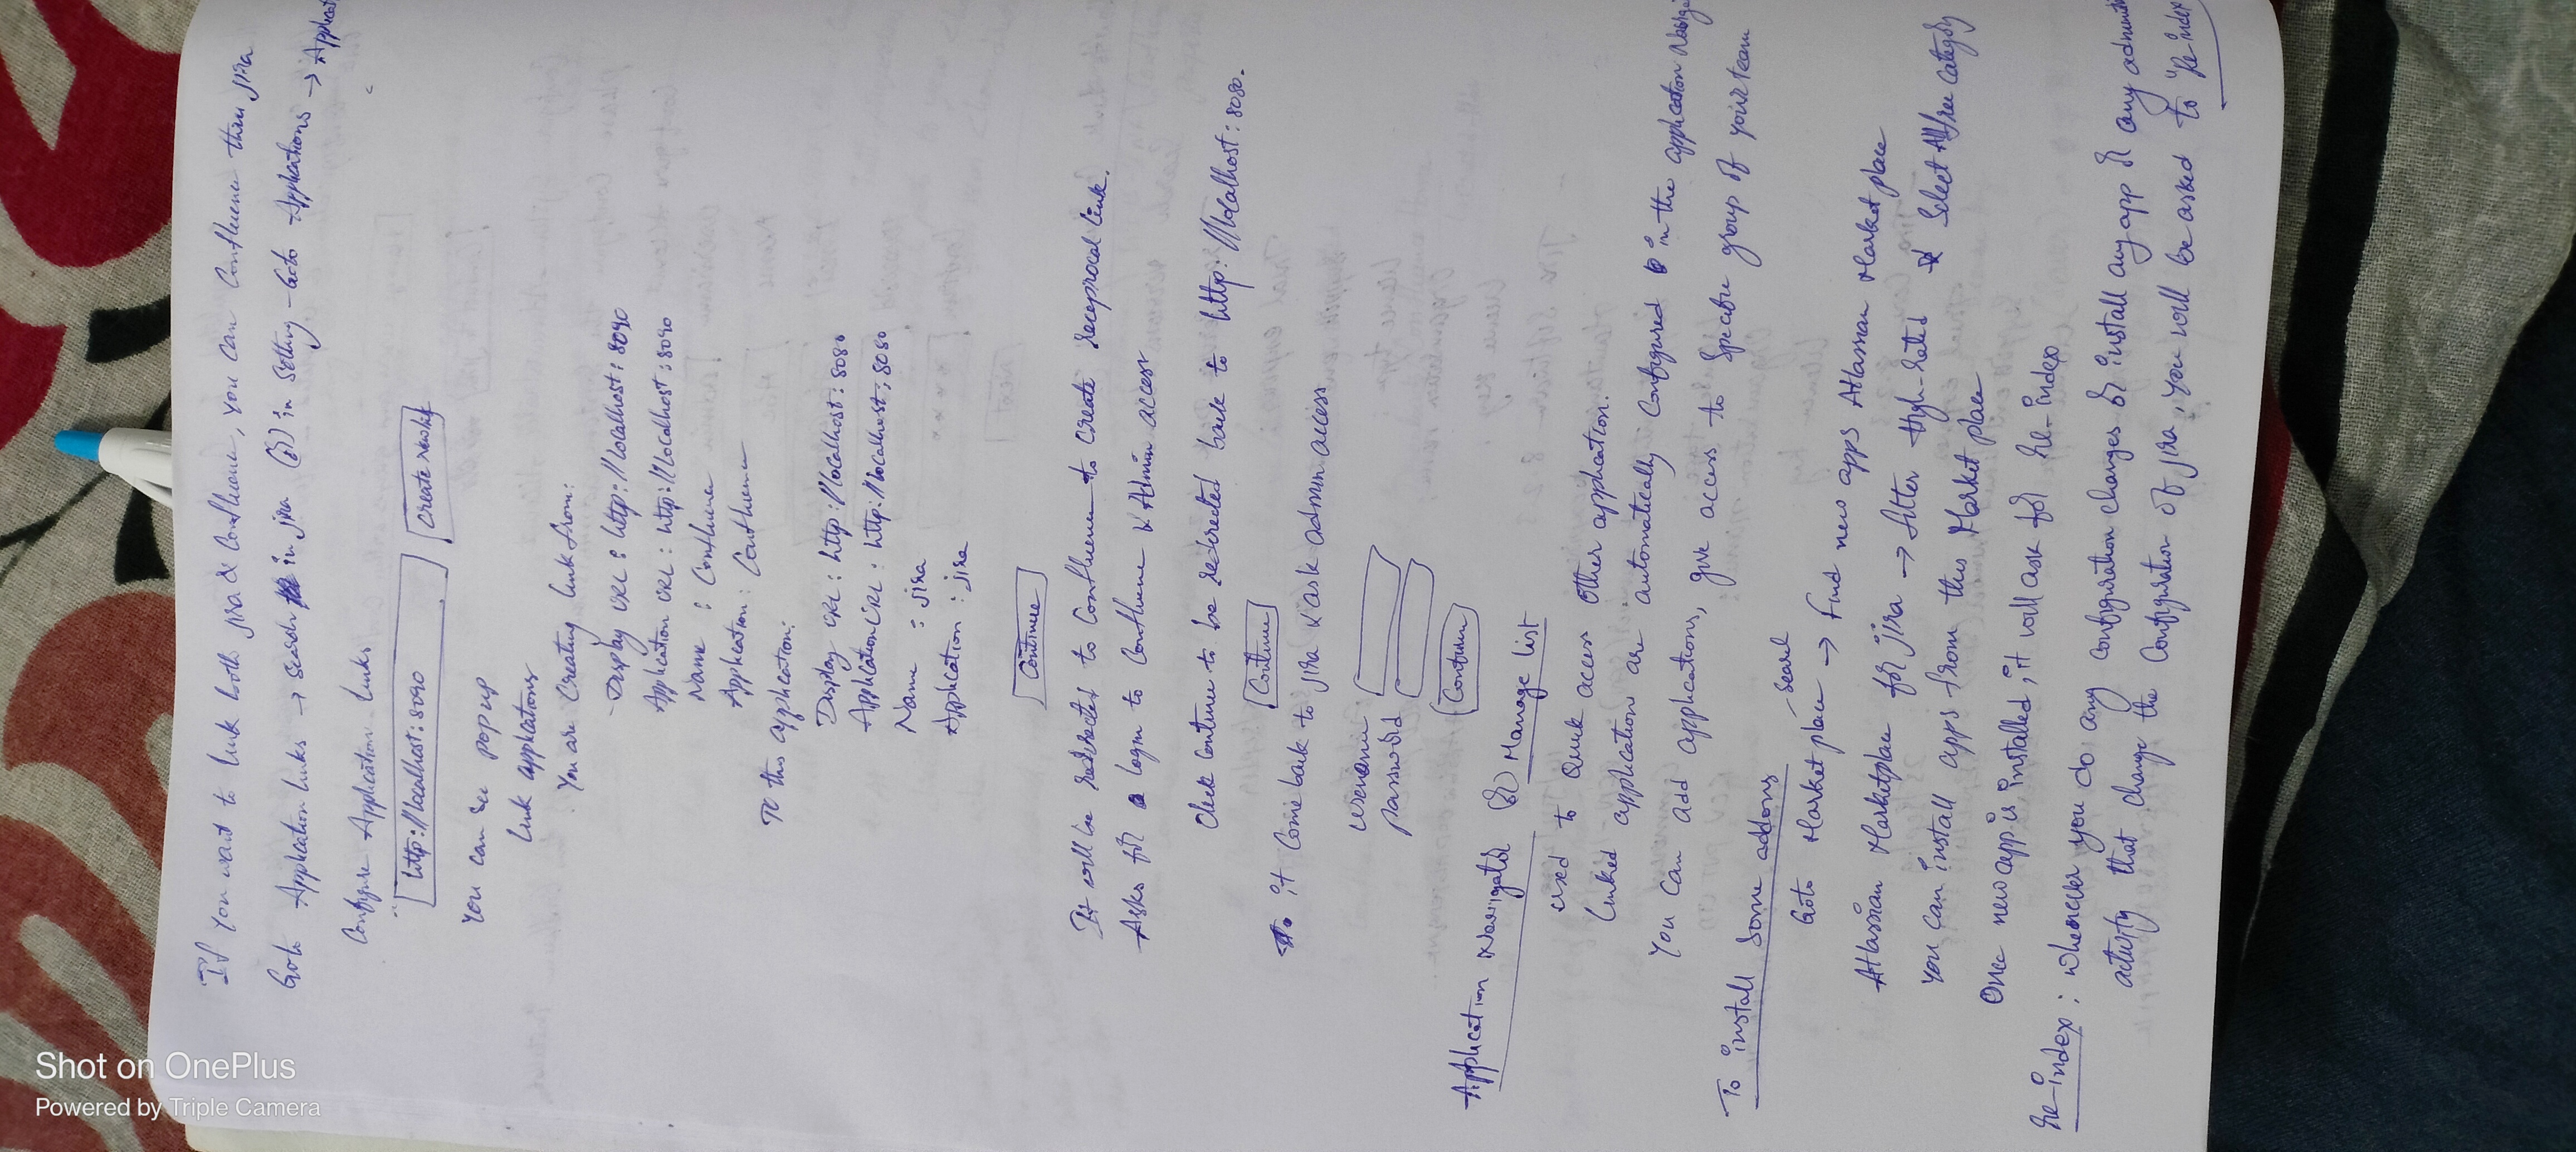 If you want to link both jira & Confluence, you can Confluence thru jira
Goto Application links → search in jira (or) in Setting - Goto Applications → Applicat
Configure Application links
http://localhost:8090 Create New link
You can see pop up
Link applications
You are Creating link from:
Display URL : http://localhost:8090
Application URL : http://localhost:8090
Name : Confluence
Application : Confluence
To this application:
Display URL : http://localhost:8080
Application URL : http://localhost:8080
Name : jira
Application : jira
Continue
It will be redirected to Confluence to create reciprocal link.
Asks for login to Confluence & Admin access
Click Continue to be redirected back to http://localhost:8080.
Continue
it Come back to jira & ask admin access
username
password
Continue
Application Navigator (or) Manage list
used to Quick access other application.
Linked application are automatically configured in the application Naviga
You can add applications, give access to Specific group of your team
To install Some addons
search
Goto Market place → Find new apps Atlassian Market place
Atlassian Marketplace for jira → filter High-rated & Select All free category
You can install apps from this Market place
Once new app is installed, it will ask for Re-index
Re-index : Whenever you do any configuration changes or install any app or any administ
activity that change the Configuration of jira, you will be asked to "Re-index
Shot on OnePlus
Powered by Triple Camera